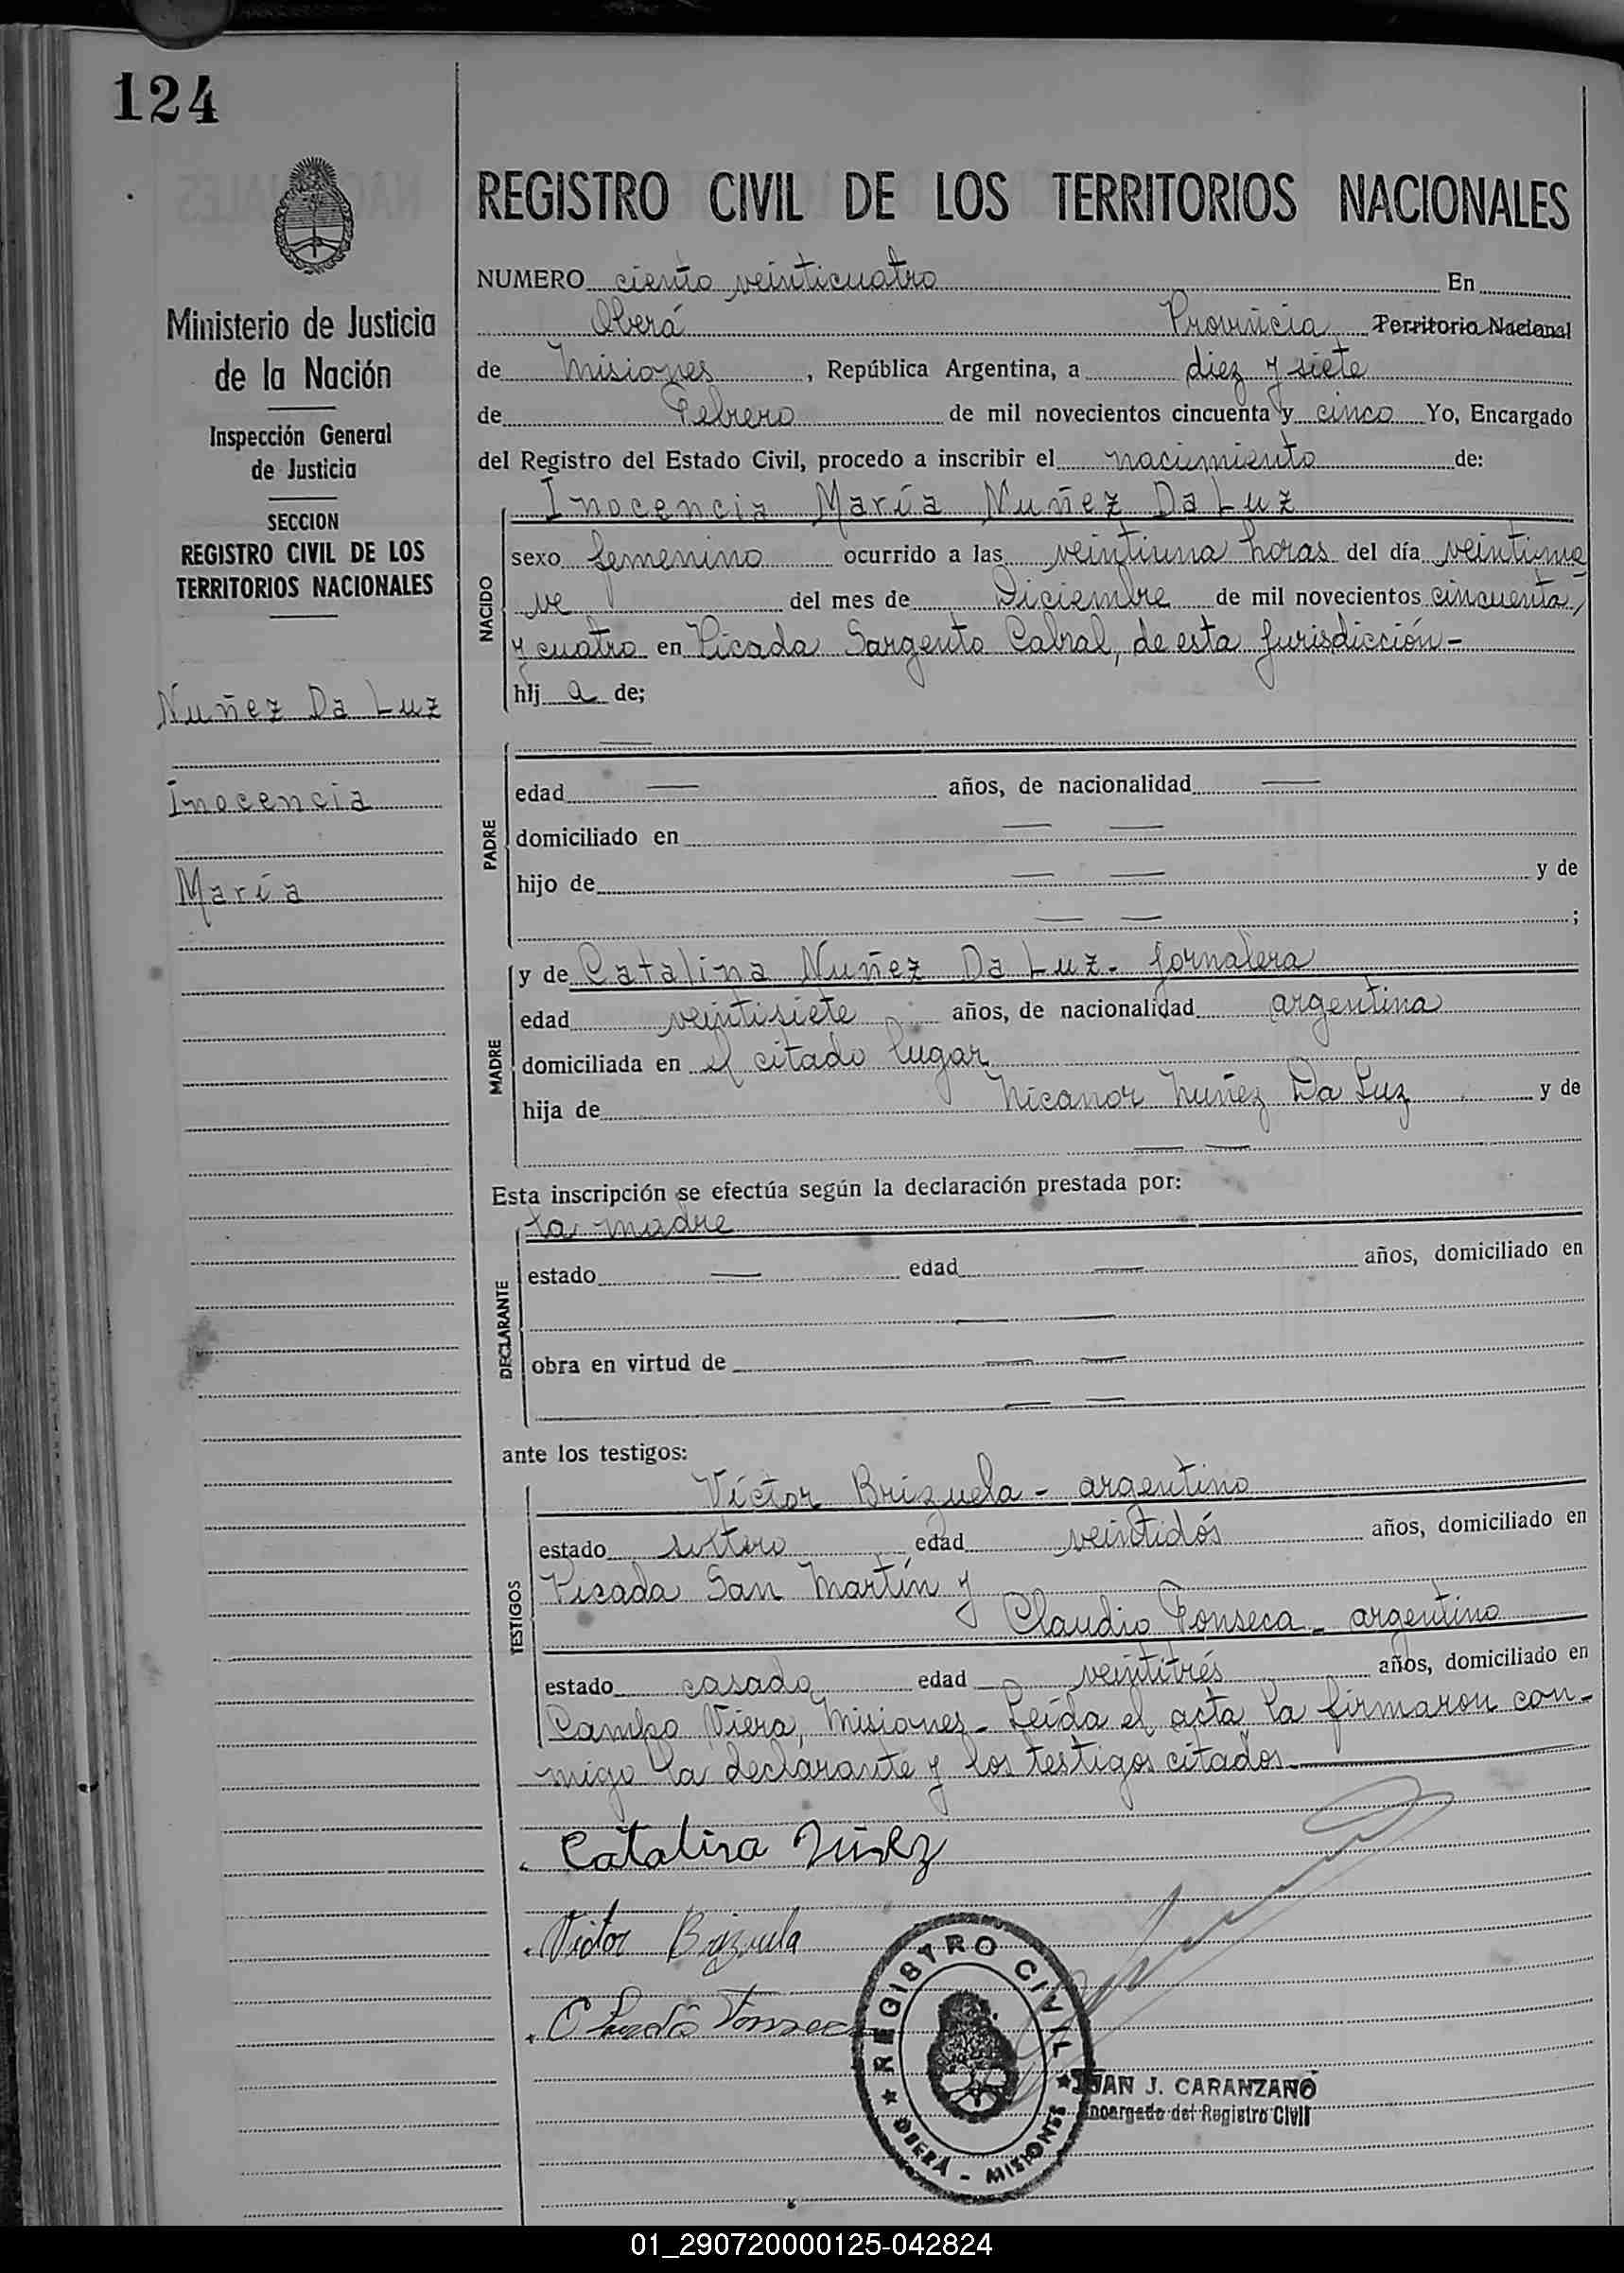 124
REGISTRO CIVIL DE LOS TERRITORIOS NACIONALES
NUMERO ciento veinticuatro En
Oberá Provincia Territorio Nacional
de Misiones, República Argentina, a diez y siete
de Febrero de mil novecientos cincuenta y cinco Yo, Encargado
del Registro del Estado Civil, procedo a inscribir el nacimiento de:
Ministerio de Justicia
de la Nación
Inspección General
de Justicia
SECCION
REGISTRO CIVIL DE LOS
TERRITORIOS NACIONALES
Nuñez Da Luz
Inocencia
María
NACIDO
Inocencia María Nuñez Da Luz
sexo femenino ocurrido a las veintiuna horas del día veintinue
ve del mes de Diciembre de mil novecientos cincuenta
y cuatro en Picada Sargento Cabral, de esta jurisdicción-
hij a de;
PADRE
edad — años, de nacionalidad —
domiciliado en — —
hijo de — — y de
— — ;
MADRE
y de Catalina Nuñez Da Luz- jornalera
edad veintisiete años, de nacionalidad argentina
domiciliada en el citado lugar
hija de Nicanor Nuñez Da Luz y de
— —
Esta inscripción se efectúa según la declaración prestada por:
DECLARANTE
la madre
estado — edad — años, domiciliado en
— —
obra en virtud de — —
— —
ante los testigos:
TESTIGOS
Víctor Brizuela - argentino
estado soltero edad veintidós años, domiciliado en
Picada San Martín y
Claudio Fonseca - argentino
estado casado edad veintitrés años, domiciliado en
Campo Viera, Misiones- Leída el acta la firmaron con-
migo la declarante y los testigos citados-
Catalina Nuñez
Victor Brizuela
Claudio Fonseca
REGISTRO CIVIL
OBERÁ - MISIONES
JUAN J. CARANZANO
Encargado del Registro Civil
01_290720000125-042824